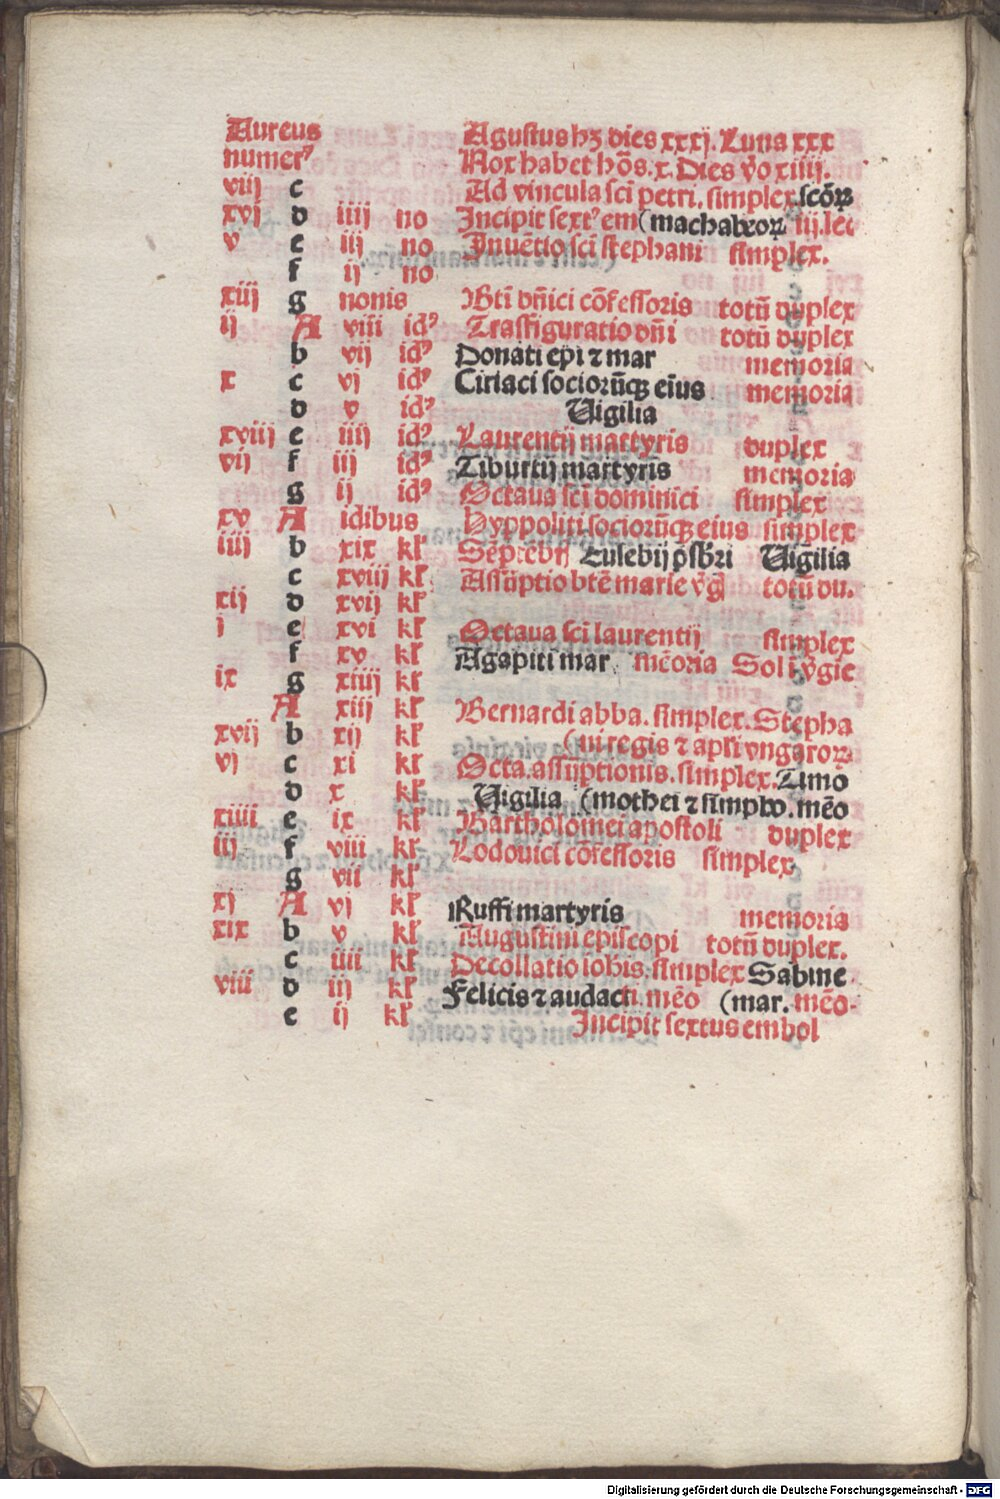 Aureus Agustus hꝫ dies xxxj. Luna xxx
numerꝰ Nox habet hõs. x. Dies v̾o xiiij.
viij c Ad vincula sci̅ petri. simplex. scõꝝ
xvj d iiij no Incipit sextꝰ em (machabeoꝝ iij. lec
v e iij no Inue̅tio sci̅ stephani simplex.
f ij no
xiij g nonis Bti̅ dn̅ici cõfessoris totu̅ duplex
ij A viii idꝰ Trasfiguratio dn̅i totu̅ duplex
b vij idꝰ Donati ep̅i ⁊ mar memoria
x c vj idꝰ Ciriaci socioru̅qꝫ eius memoria
d v idꝰ Uigilia
xviij e iiij idꝰ Laurentij martyris duplex
vij f iij idꝰ Tiburtij martyris memoria
g ij idꝰ Octaua sci̅ dominici simplex
xv A idibus Hyppoliti socioru̅qꝫ eius simplex
iiij b xix kl̅ Septe̅br̅ Eusebij p̅sb̅ri Uigilia
c xviij kl̅ Assu̅ptio bte̅ marie v̾g̅ totu̅ du.
xij d xvij kl̅
j e xvi kl̅ Octaua sci̅ laurentij simplex
f xv kl̅ Agapiti mar me̅oria Sol i̅ v̾gie
ix g xiiij kl̅
A xiij kl̅ Bernardi abba. simplex. Stepha
xvij b xij kl̅ (ni regis ⁊ apsi vngaroꝝ
vj c xi kl̅ Octa. assu̅ptionis. simplex. Timo
d x kl̅ Uigilia (mothei ⁊ simpho. me̅o
xiiii e ix kl̅ Bartholomei apostoli duplex
iij f viii kl̅ Lodouici cõfessoris simplex
g vii kl̅
xj A vj kl̅ Ruffi martyris memoria
xix b v kl̅ Augustini episcopi totu̅ duplex.
c iiii kl̅ Decollatio iohis. simplex Sabine
viii d iij kl̅ Felicis ⁊ audacti. me̅o (mar. me̅o.
e ij kl̅ Incipit sextus embol
Digitalisierung gefördert durch die Deutsche Forschungsgemeinschaft - DFG